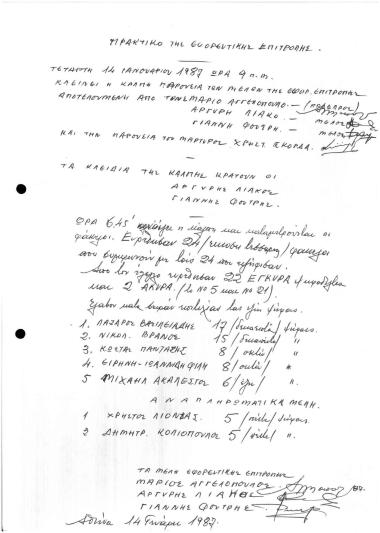 ΠΡΑΚΤΙΚΟ ΤΗΣ ΕΦΟΡΕΥΤΙΚΗΣ ΕΠΙΤΡΟΠΗΣ.
ΤΕΤΑΡΤΗ 14 ΙΑΝΟΥΑΡΙΟΥ 1987 ΩΡΑ 9 π.μ.
ΚΛΕΙΝΕΙ Η ΚΑΛΠΗ ΠΑΡΟΥΣΙΑ ΤΩΝ ΜΕΛΩΝ ΤΗΣ ΕΦΟΡ. ΕΠΙΤΡΟΠΗΣ
ΑΠΟΤΕΛΟΥΜΕΝΗ ΑΠΟ ΤΟΥΣ ΜΑΡΙΟ ΑΓΓΕΛΟΠΟΥΛΟ - (ΠΡΟΕΔΡΟΣ)
ΑΡΓΥΡΗ ΛΙΑΚΟ - ΜΕΛΟΣ
ΓΙΑΝΝΗ ΦΟΥΤΡΗ. - ΜΕΛΟΣ
ΚΑΙ ΤΗΝ ΠΑΡΟΥΣΙΑ ΤΟΥ ΜΑΡΤΥΡΟΣ ΧΡΗΣΤ. ΣΚΟΡΔΑ.
ΤΑ ΚΛΕΙΔΙΑ ΤΗΣ ΚΑΛΠΗΣ ΚΡΑΤΟΥΝ ΟΙ
ΑΡΓΥΡΗΣ ΛΙΑΚΟΣ
ΓΙΑΝΝΗΣ ΦΟΥΤΡΗΣ.
ΩΡΑ 6.45' ανοίγει η κάλπη και καταμετρούνται οι
φάκελοι. Ευρέθησαν 24 /είκοσι τέσσερις/ φάκελοι
που συμφωνούν με τους 24 που εψήφισαν.
Από τον έλεγχο ευρέθησαν 22 ΕΓΚΥΡΑ ψηφοδέλτια
και 2 ΑΚΥΡΑ /το Νο 5 και Νο 21/.
Έλαβον κατά σειράν επιτυχίας τας εξής ψήφους.
1. ΛΑΖΑΡΟΣ ΒΑΣΙΛΕΙΑΔΗΣ 17 /δεκαεπτά/ ψήφους.
2. ΝΙΚΟΛ. ΒΡΑΝΟΣ 15 /δεκαπέντε/ "
3. ΚΩΣΤΑΣ ΠΑΝΤΑΖΗΣ 8 /οκτώ/ "
4. ΕΙΡΗΝΗ-ΙΩΑΝΝΑ ΦΙΛΗ 8 /οκτώ/ "
5 ΜΙΧΑΗΛ ΑΚΑΛΕΣΤΟΣ 6 /έξι/ "
ΑΝΑΠΛΗΡΩΜΑΤΙΚΑ ΜΕΛΗ.
1 ΧΡΗΣΤΟΣ ΛΙΟΝΤΑΣ. 5 /πέντε/ ψήφους
2 ΔΗΜΗΤΡ. ΚΟΛΙΟΠΟΥΛΟΣ 5 /πέντε/ "
ΤΑ ΜΕΛΗ ΕΦΟΡΕΥΤΙΚΗΣ ΕΠΙΤΡΟΠΗΣ
ΜΑΡΙΟΣ ΑΓΓΕΛΟΠΟΥΛΟΣ.
ΑΡΓΥΡΗΣ ΛΙΑΚΟΣ
ΓΙΑΝΝΗΣ ΦΟΥΤΡΗΣ.
Αθήνα 14 Γενάρη 1987.